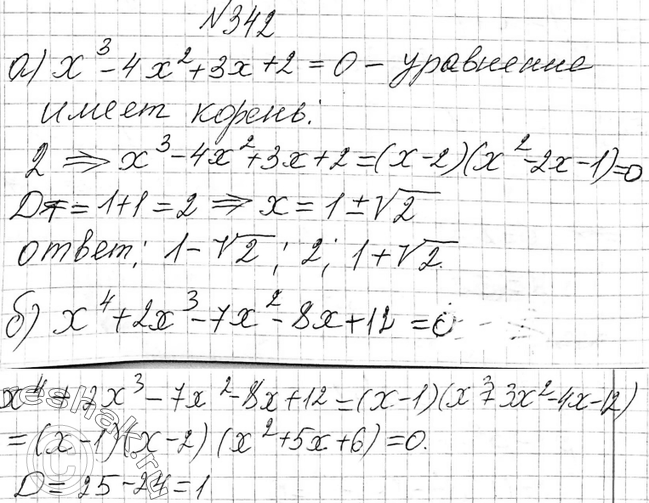 №342
а) x³-4x²+3x+2=0 - уравнение
имеет корень:
2 ⇒ x³-4x²+3x+2=(x-2)(x²-2x-1)=0
D₁=1+1=2 ⇒ x=1±√2
ответ; 1-√2; 2; 1+√2.
б) x⁴+2x³-7x²-8x+12=0
x⁴+2x³-7x²-8x+12=(x-1)(x³+3x²-4x-12)
=(x-1)(x-2)(x²+5x+6)=0.
D=25-24=1